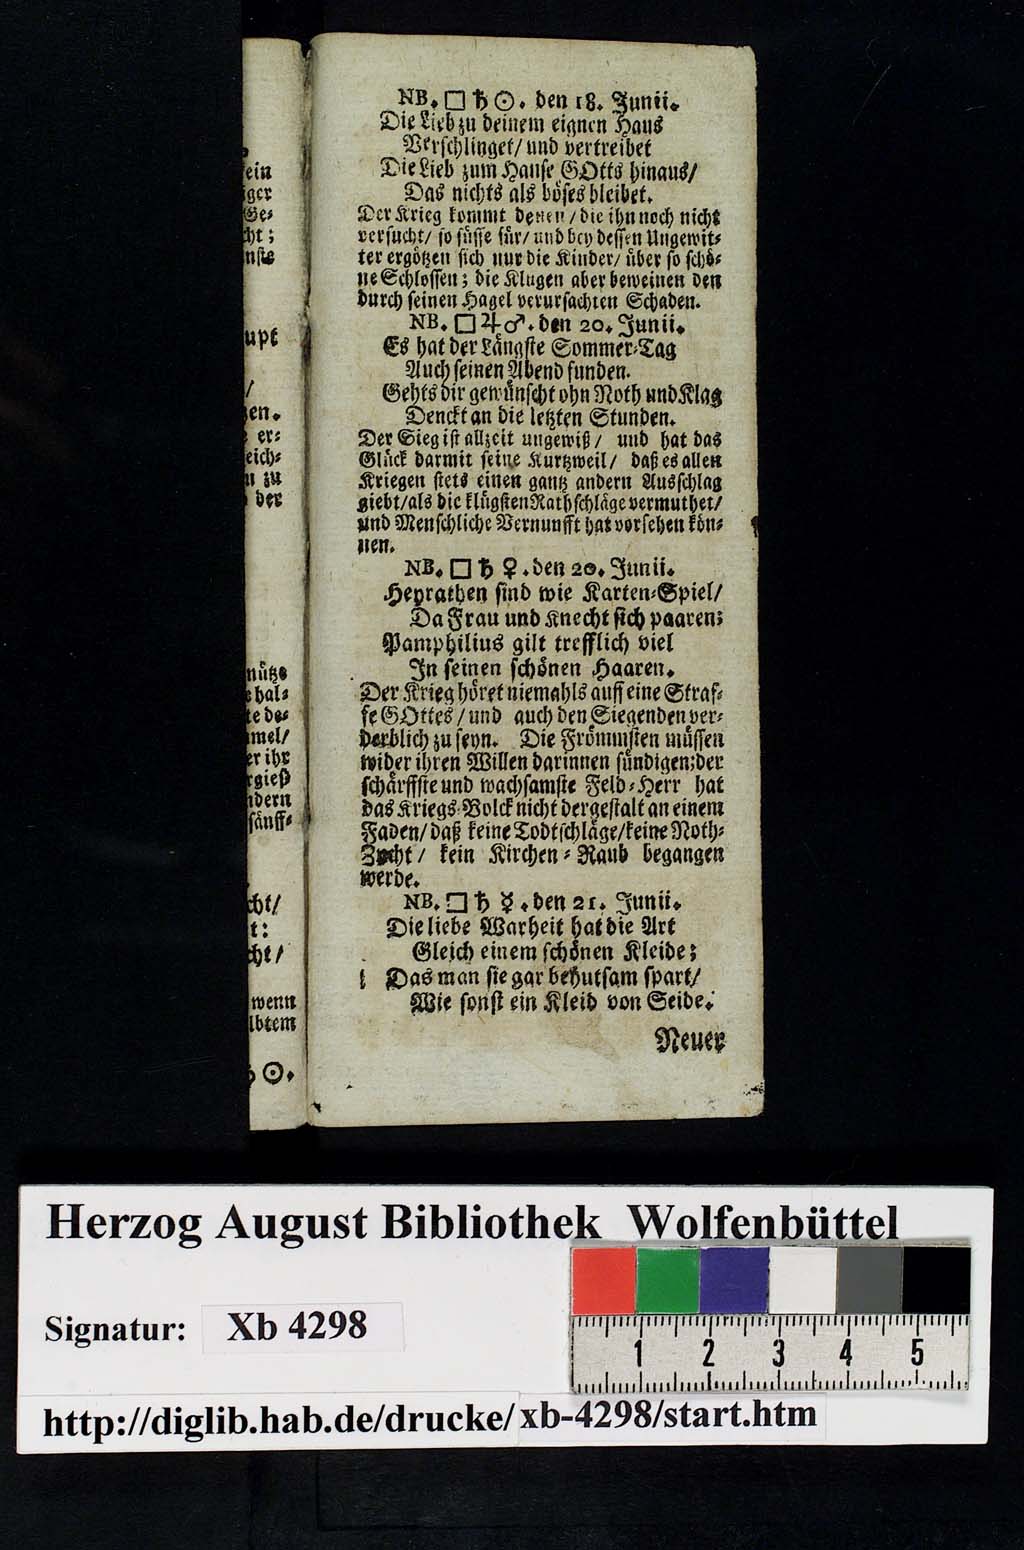 NB. □ ♄ ☉. den 18. Junii.
Die Lieb zu deinem eignen Haus
Verschlinget/ und vertreibet
Die Lieb zum Hause GOtts hinaus/
Das nichts als böses bleibet.
Der Krieg kommt denen/ die ihn noch nicht
versucht/ so süsse für/ und bey dessen Ungewit⸗
ter ergötzen sich nur die Kinder/ über so schö⸗
ne Schlossen; die Klugen aber beweinen den
durch seinen Hagel verursachten Schaden.
NB. □ ♃ ♂. den 20. Junii.
Es hat der Längste Sommer⸗Tag
Auch seinen Abend funden.
Gehts dir gewünscht ohn Noth und Klag
Denckt an die letzten Stunden.
Der Sieg ist allzeit ungewiß/ und hat das
Glück darmit seine Kurtzweil/ daß es allen
Kriegen stets einen gantz andern Ausschlag
giebt/ als die klügsten Rathschläge vermuthet/
und Menschliche Vernunfft hat vorsehen kön⸗
nen.
NB. □ ♄ ♀. den 20. Junii.
Heyrathen sind wie Karten⸗Spiel/
Da Frau und Knecht sich paaren;
Pamphilius gilt trefflich viel
In seinen schönen Haaren.
Der Krieg höret niemahls auff eine Straf⸗
fe GOttes/ und auch den Siegenden ver⸗
derblich zu seyn. Die Frömmsten müssen
wider ihren Willen darinnen sündigen; der
schärffste und wachsamste Feld⸗Herr hat
das Kriegs⸗Volck nicht dergestalt an einem
Faden/ daß keine Todtschläge/ keine Noth⸗
Zucht/ kein Kirchen⸗Raub begangen
werde.
NB. □ ♄ ☿. den 21. Junii.
Die liebe Warheit hat die Art
Gleich einem schönen Kleide;
Das man sie gar behutsam spart/
Wie sonst ein Kleid von Seide.
Neuer
ein
ger
Ge⸗
ht;
nste
upt
/
en.
er⸗
eich⸗
zu
der
nütze
hal⸗
te de⸗
mel/
er ihr
rgieß
ndern
sänff⸗
cht/
t:
cht/
wenn
lbtem
☉.
Herzog August Bibliothek Wolfenbüttel
Signatur: Xb 4298
1 2 3 4 5
http://diglib.hab.de/drucke/xb-4298/start.htm